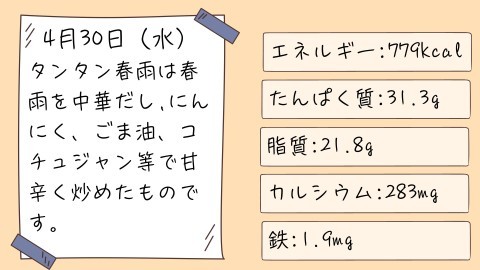 4月30日（水）
タンタン春雨は春
雨を中華だし、にん
にく、ごま油、コ
チュジャン等で甘
辛く炒めたもので
す。
エネルギー:779kcal
たんぱく質:31.3g
脂質:21.8g
カルシウム:283mg
鉄:1.9mg